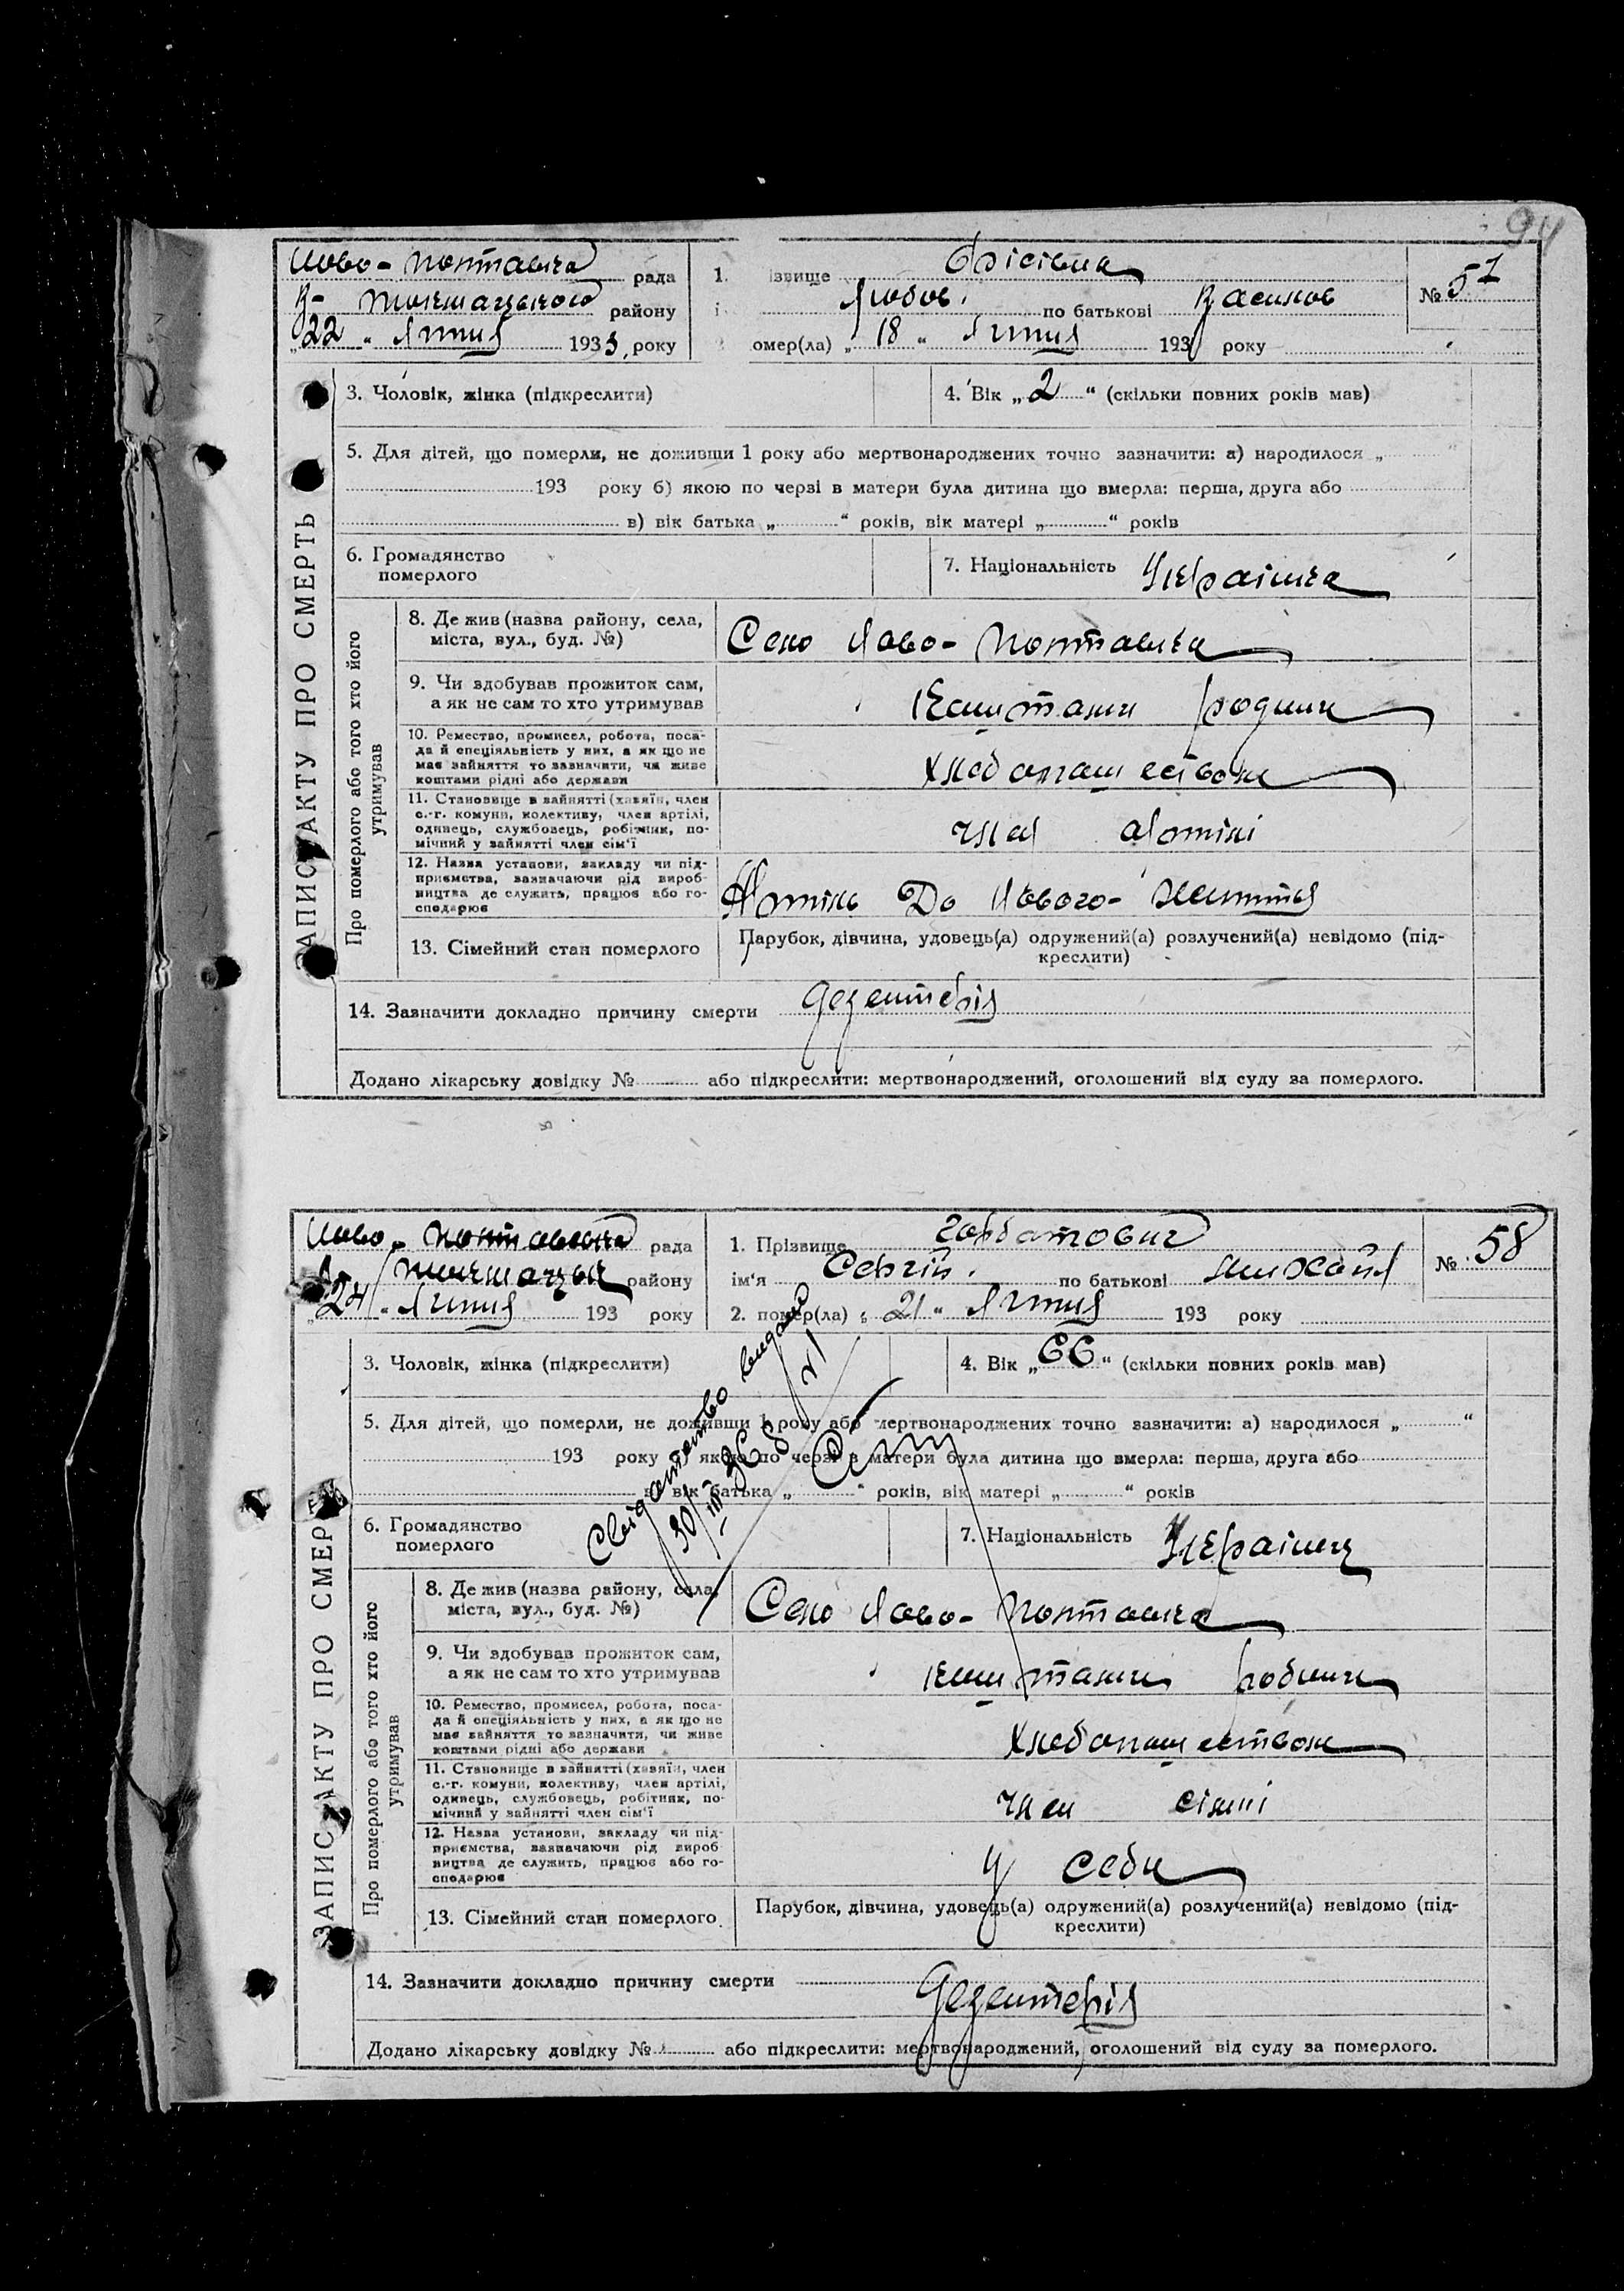 94
Ново-Полтавка рада
В-Токмацького району
„22“ Липня 1933 року
1. ізвище
Любов по батькові Васильов
омер(ла) „18“ Липня 193 року
№ 57
3. Чоловік, жінка (підкреслити)
4. Вік „2“ (скільки повних років мав)
5. Для дітей, що померли, не доживши 1 року або мертвонароджених точно зазначити: а) народилося „ “
193 року б) якою по черзі в матери була дитина що вмерла: перша, друга або
в) вік батька „ “ років, вік матері „ “ років
6. Громадянство
померлого
7. Національність Українка
ЗАПИС АКТУ ПРО СМЕРТЬ
Про померлого або того хто його
утримував
8. Де жив (назва району, села,
міста, вул., буд. №)
Село Ново-Полтавка
9. Чи здобував прожиток сам,
а як не сам то хто утримував
Коштами родини
10. Ремество, промисел, робота, поса-
да й спеціяльність у них, а як що не
має зайняття то зазначити, чи живе
коштами рідні або держави
Хлебопашеством
11. Становище в зайнятті (хазяїн, член
с.-г. комуни, колективу, член артілі,
одинець, службовець, робітник, по-
мічний у зайнятті член сім'ї
член Артілі
12. Назва установи, закладу чи під-
приємства, зазначаючи рід вироб-
ництва де служить, працює або го-
сподарює
Артіль До Нового-Життя
13. Сімейний стан померлого
Парубок, дівчина, удовець(а) одружений(а) розлучений(а) невідомо (під-
креслити)
14. Зазначити докладно причину смерти Дезентерія
Додано лікарську довідку № або підкреслити: мертвонароджений, оголошений від суду за померлого.
Ново-Полтавська рада
Токмацьк району
„24“ Липня 193 року
1. Прізвище Горбатович
ім'я Сергій по батькові Михайл
2. помер(ла) „21“ Липня 193 року
№ 58
3. Чоловік, жінка (підкреслити)
4. Вік „66“ (скільки повних років мав)
Свидетельство выдано
30/III 36
5. Для дітей, що померли, не доживши 1 року або мертвонароджених точно зазначити: а) народилося „ “
193 року б) якою по черзі в матери була дитина що вмерла: перша, друга або
в) вік батька „ “ років, вік матері „ “ років
6. Громадянство
померлого
7. Національність Українец
ЗАПИС АКТУ ПРО СМЕР
Про померлого або того хто його
утримував
8. Де жив (назва району, села,
міста, вул., буд. №)
Село Ново-Полтавка
9. Чи здобував прожиток сам,
а як не сам то хто утримував
Коштами родини
10. Ремество, промисел, робота, поса-
да й спеціяльність у них, а як що не
має зайняття то зазначити, чи живе
коштами рідні або держави
Хлебопашеством
11. Становище в зайнятті (хазяїн, член
с.-г. комуни, колективу, член артілі,
одинець, службовець, робітник, по-
мічний у зайнятті член сім'ї
член сімиі
12. Назва установи, закладу чи під-
приємства, зазначаючи рід вироб-
ництва де служить, працює або го-
сподарює
У себи
13. Сімейний стан померлого
Парубок, дівчина, удовець(а) одружений(а) розлучений(а) невідомо (під-
креслити)
14. Зазначити докладно причину смерти
Дезентерія
Додано лікарську довідку № або підкреслити: мертвонароджений, оголошений від суду за померлого.